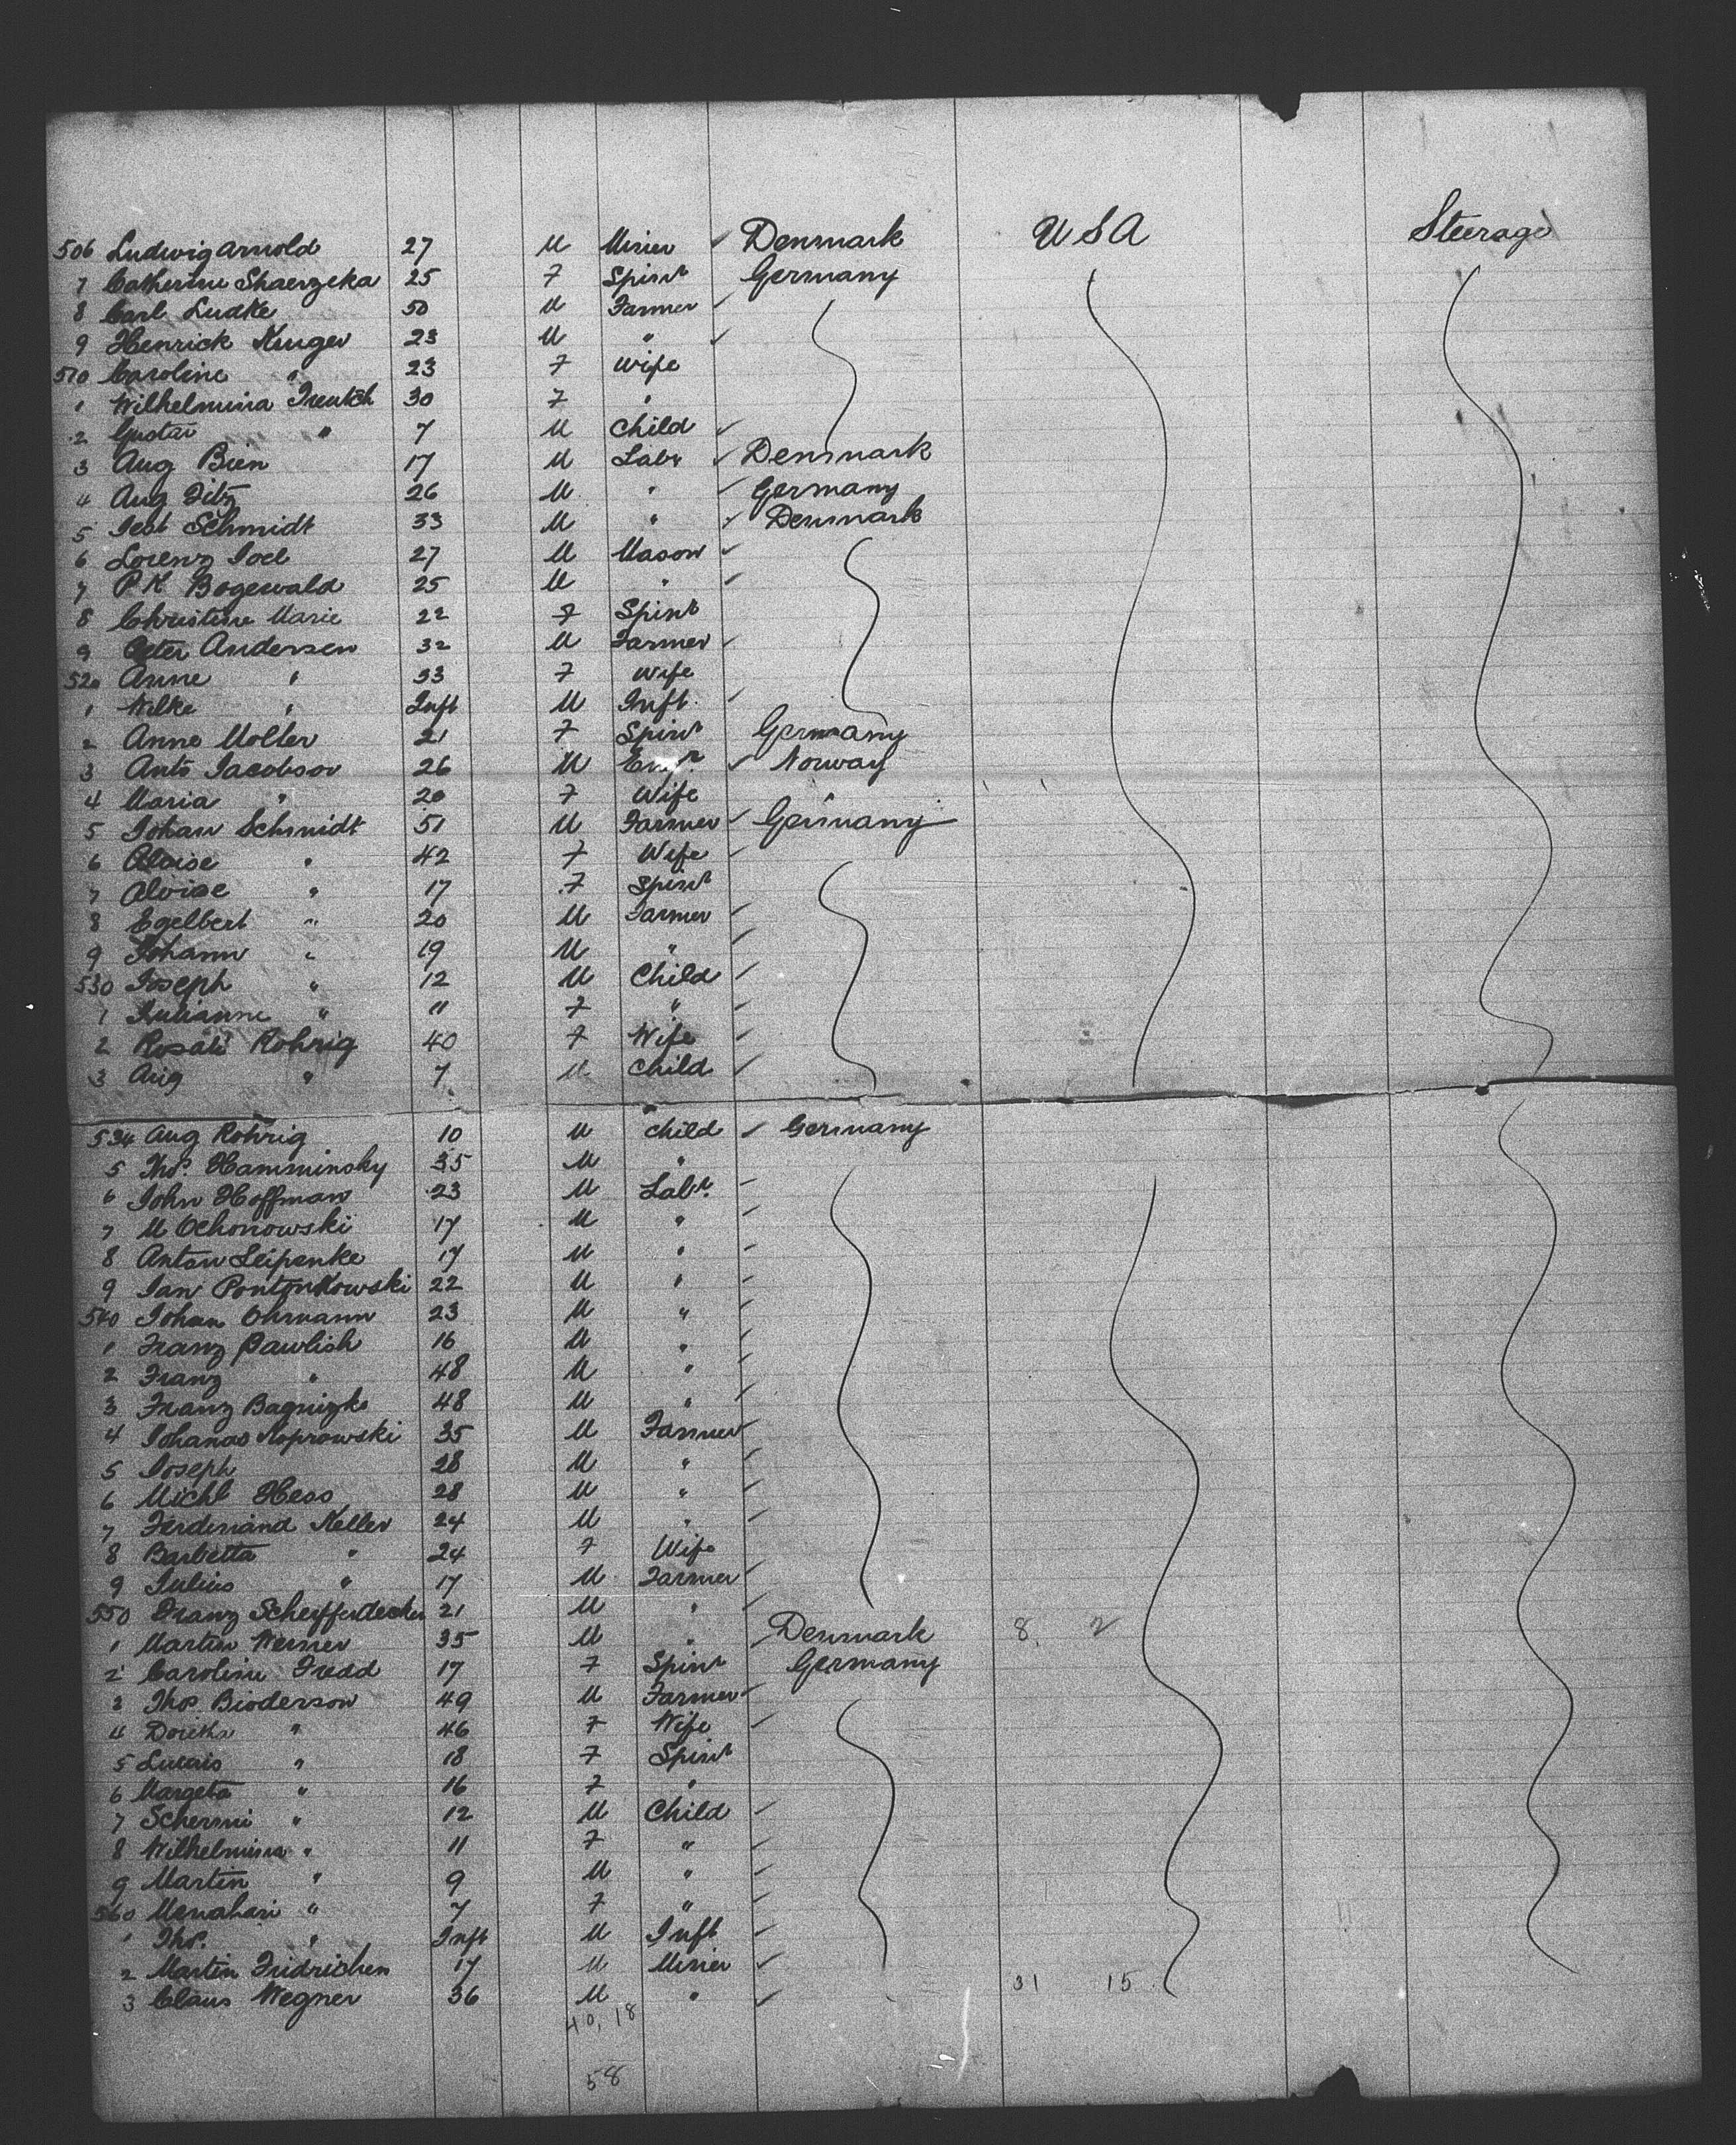 506 Ludwig Arnold 27 M Miner ✓ Denmark USA Steerage
7 Catherine Skaerzeka 25 F Spinr Germany
8 Carl Ludke 50 M Farmer ✓
9 Henrick Kruger 23 M " ✓
510 Caroline " 23 F Wife
1 Wilhelmina Treutch 30 F "
2 Gustav " 7 M Child ✓
3 Aug Bien 17 M Labr ✓ Denmark
4 Aug Fitz 26 M " ✓ Germany
5 Jest Schmidt 33 M " ✓ Denmark
6 Lorenz Joel 27 M Mason ✓
7 P.K Bogewald 25 M " ✓
8 Christine Marie 22 F Spinr
9 Peter Andersen 32 M Farmer ✓
520 Anne " 33 F Wife
1 Wilke " Inft M Inft. ✓
2 Anne Moller 21 F Spinr Germany
3 Anto Jacobson 26 M Engr. ✓ Norway
4 Maria " 20 F Wife
5 Johan Schmidt 51 M Farmer ✓ Germany
6 Aloise " 42 F Wife ✓
7 Aloise " 17 F Spinr
8 Egelbert " 20 M Farmer ✓
9 Johann " 19 M " ✓
530 Joseph " 12 M Child ✓
1 Julianne " 11 F " ✓
2 Rosali Rohrig 40 F Wife ✓
3 Aug " 7 M Child ✓
534 Aug Rohrig 10 M Child ✓ Germany
5 Thos. Hamminsky 35 M "
6 John Hoffman 23 M Labr. ✓
7 M Ochonowski 17 M " ✓
8 Anton Leipenke 17 M " ✓
9 Jan 22 M " ✓
540 Johan Ohmann 23 M " ✓
1 Franz Pawlish 16 M " ✓
2 Franz " 48 M " ✓
3 Franz 48 M " ✓
4 Johanas Koprowski 35 M Farmer ✓
5 Joseph 28 M " ✓
6 Michl Hess 28 M " ✓
7 Ferdinand Keller 24 M " ✓
8 Barbetta " 24 F Wife
9 Julius " 17 M Farmer ✓
550 Franz Scheifferdecker 21 M " ✓
1 Martin Werner 35 M " Denmark 8. 2
2 Caroline Fredd 17 F Spinr Germany
3 Thos. Bioderson 49 M Farmer ✓
4 Doretha " 46 F Wife ✓
5 " 18 F Spinr
6 Margeta " 16 F "
7 Schermi " 12 M Child ✓
8 Wilhelmina " 11 F " ✓
9 Martin " 9 M " ✓
560 " 7 F " ✓
1 Thos. " Inft M Inft ✓
2 Martin Fridrichen 17 M Miner ✓
3 Claus Wegner 36 M " ✓ 31 15
40, 18
58